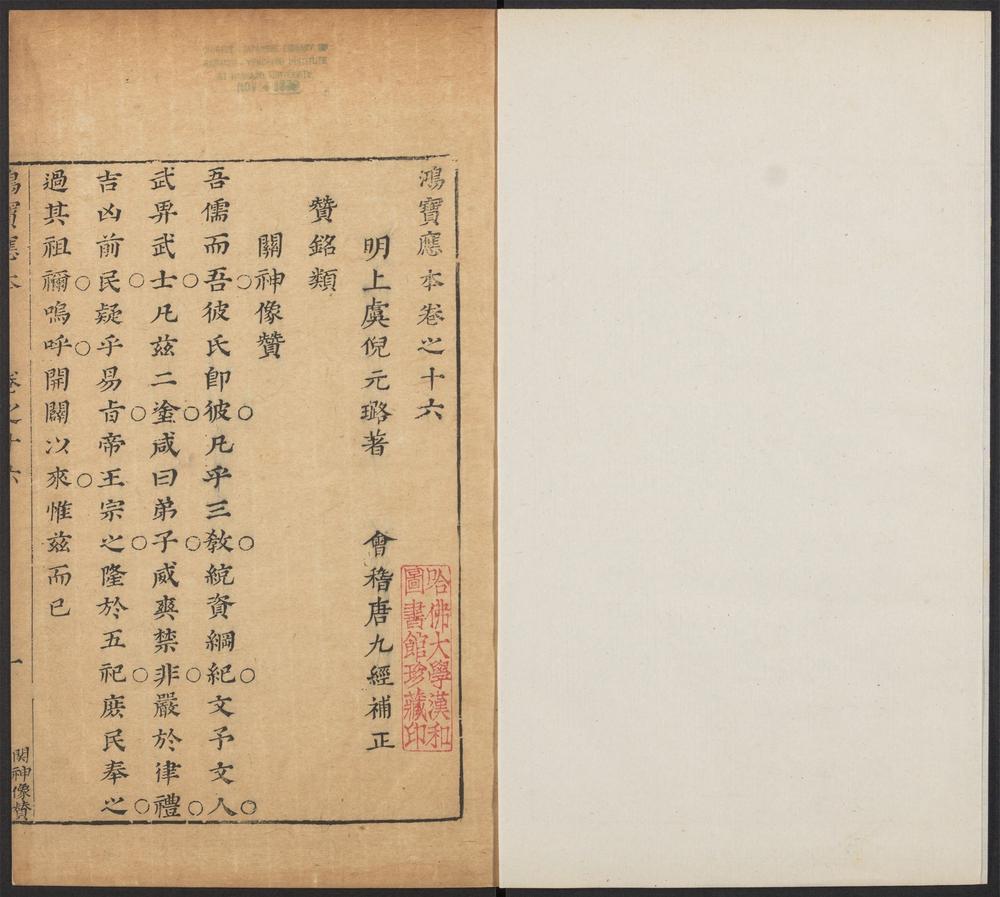 鴻寶應本卷之十六
明上虞倪元璐著　會稽唐九經補正
贊銘類
關神像贊
吾儒而吾彼氏卽彼凡乎三教統資綱紀文予文人
武畀武士凡玆二塗咸曰弟子威爽禁非嚴於律禮
吉凶前民疑乎易㫖帝王宗之隆於五祀庶民奉之
過其祖禰嗚呼開闢以來惟玆而已
鴻寶應本　卷之十六　一
関神像贊
哈佛大學漢和
圖書館珍藏印